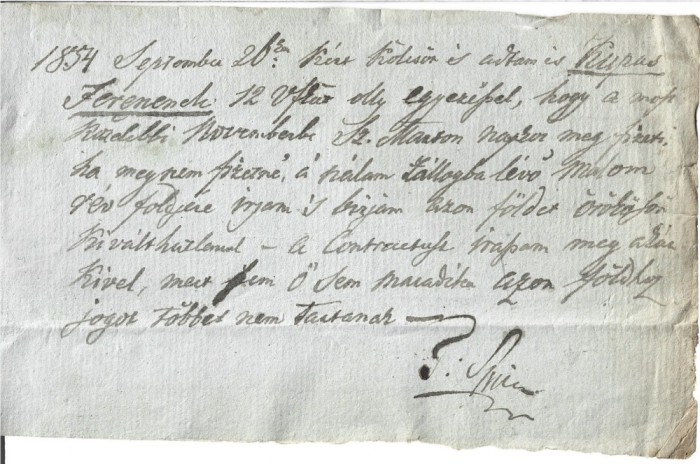 1854 Septembe 26án Kért Kölcsön is adtam is Kupas
Ferenenek 12 Vftot olly egyezéssel, hogy a most
Közelebbi Novemberbe Sz. Marton napkor meg fizeti
ha meg nem fizetné, á nálam Zállogba lévő Malom
rév földjére irjam is bizjam azon földet örökösön
Kiválthatlanul – a Contractust irassam meg akár
Kivel, mert sem Ő sem maradéka azon földhöz
jogot többet nem tartanak